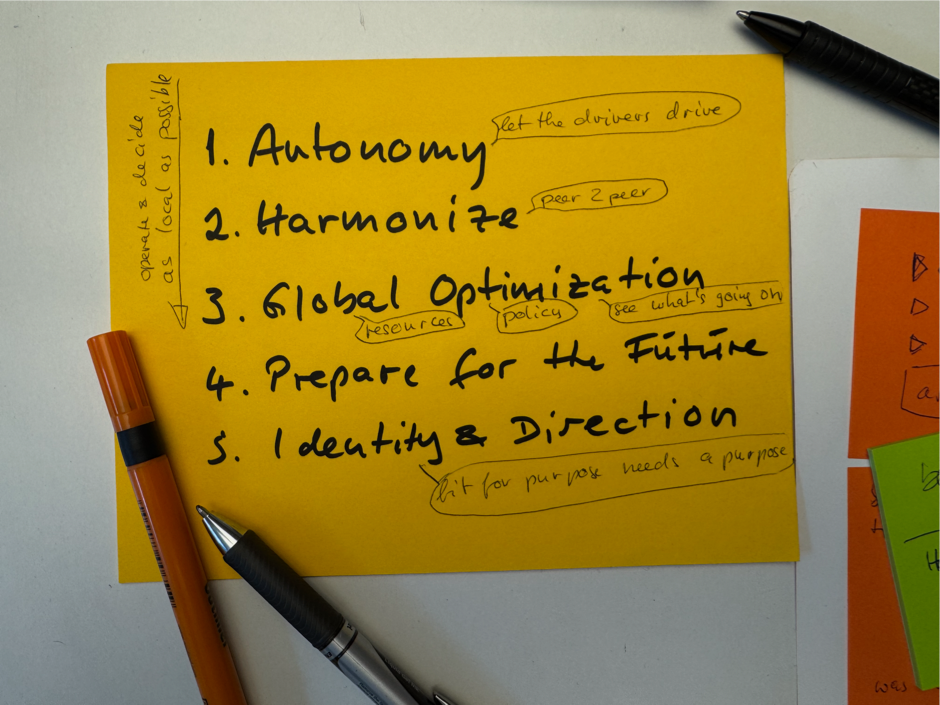 operate & decide
as local as possible
1. Autonomy
let the drivers drive
2. Harmonize
peer 2 peer
3. Global Optimization
resources
policy
see what's going on
4. Prepare for the Future
5. Identity & Direction
fit for purpose needs a purpose
was